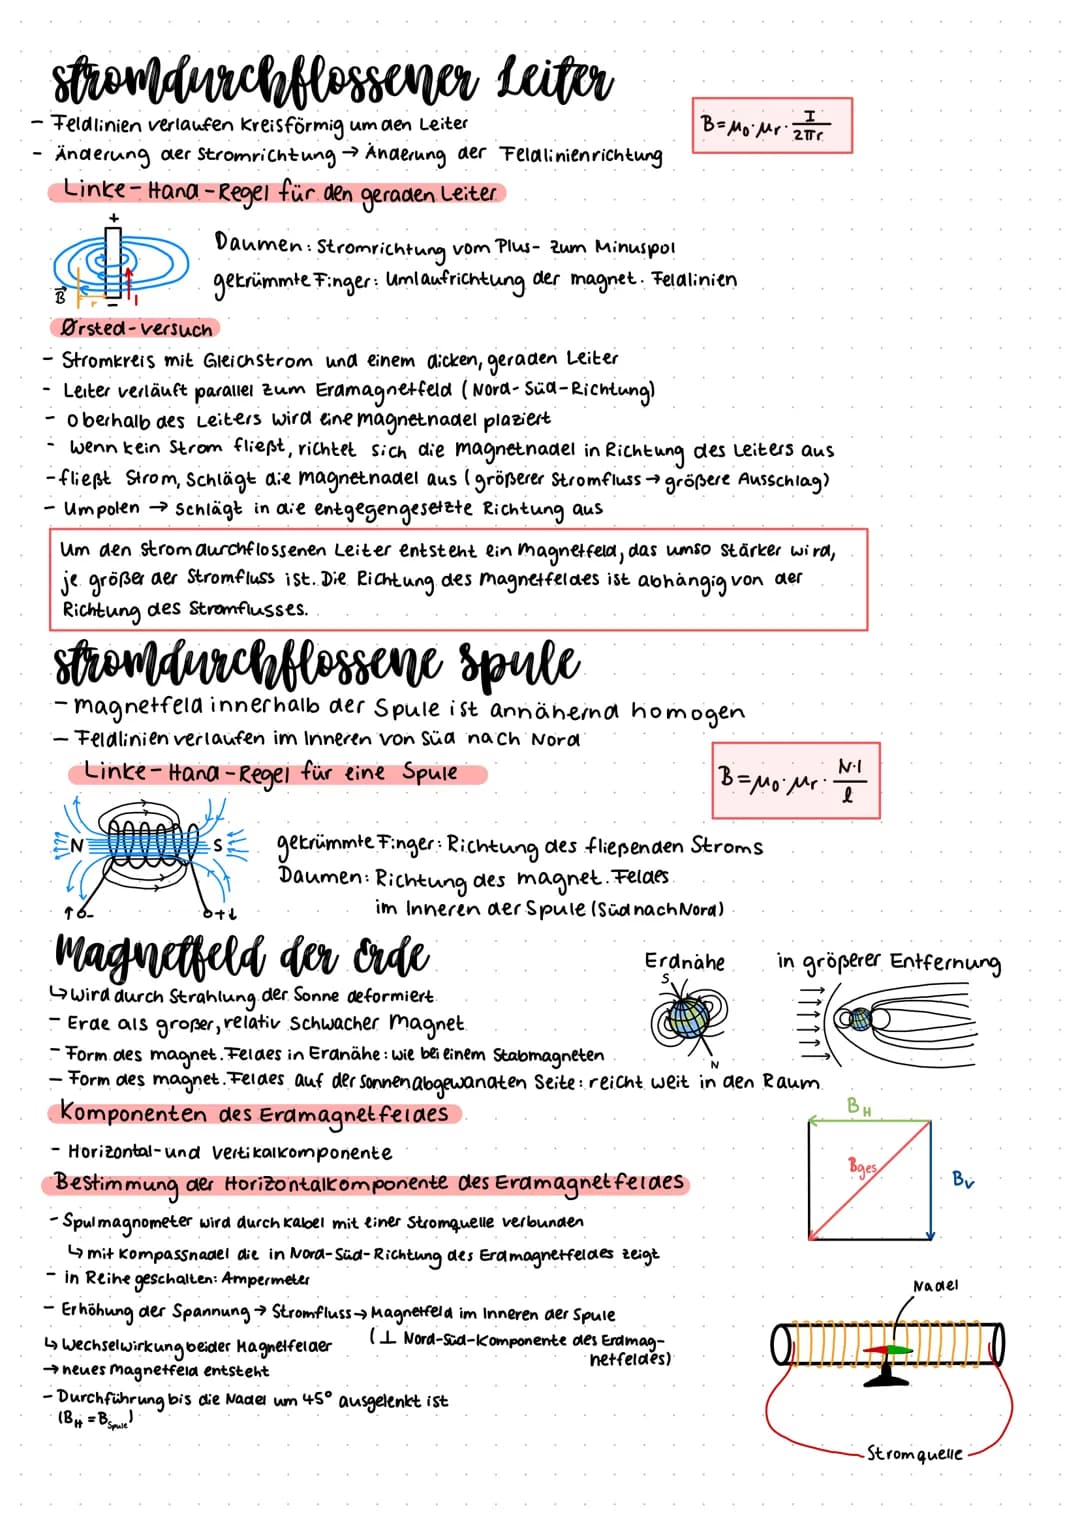 stromdurchflossener Leiter
- Feldlinien verlaufen kreisförmig um den Leiter
B=μ₀·μr·I/2πr
- Änderung der Stromrichtung → Änderung der Feldlinienrichtung
Linke-Hand-Regel für den geraden Leiter
+
Daumen: Stromrichtung vom Plus- zum Minuspol
gekrümmte Finger: Umlaufrichtung der magnet. Feldlinien
B r - I
Ørsted-versuch
- Stromkreis mit Gleichstrom und einem dicken, geraden Leiter
- Leiter verläuft parallel zum Erdmagnetfeld (Nord-Süd-Richtung)
- oberhalb des Leiters wird eine magnetnadel plaziert
- wenn kein Strom fließt, richtet sich die magnetnadel in Richtung des Leiters aus
- fließt Strom, schlägt die magnetnadel aus (größerer Stromfluss → größere Ausschlag)
- Umpolen → schlägt in die entgegengesetzte Richtung aus
Um den stromdurchflossenen Leiter entsteht ein magnetfeld, das umso stärker wird,
je größer der Stromfluss ist. Die Richtung des magnetfeldes ist abhängig von der
Richtung des Stromflusses.
stromdurchflossene Spule
- magnetfeld innerhalb der Spule ist annähernd homogen
- Feldlinien verlaufen im Inneren von Süd nach Nord
Linke-Hand-Regel für eine Spule
B=μ₀·μr·N·I/l
N S
gekrümmte Finger: Richtung des fließenden Stroms
Daumen: Richtung des magnet. Feldes
im Inneren der Spule (Süd nach Nord)
↑ - + ↓
Magnetfeld der Erde
Erdnähe
in größerer Entfernung
S
↳ wird durch Strahlung der Sonne deformiert
- Erde als großer, relativ schwacher magnet
- Form des magnet. Feldes in Erdnähe: wie bei einem Stabmagneten
N
- Form des magnet. Feldes auf der sonnenabgewandten Seite: reicht weit in den Raum
Komponenten des Erdmagnetfeldes
BH
- Horizontal- und Vertikalkomponente
Bges
Bv
Bestimmung der Horizontalkomponente des Erdmagnetfeldes
- Spulmagnometer wird durch Kabel mit einer Stromquelle verbunden
↳ mit Kompassnadel die in Nord-Süd-Richtung des Erdmagnetfeldes zeigt
- in Reihe geschalten: Ampermeter
Nadel
- Erhöhung der Spannung → Stromfluss → Magnetfeld im Inneren der Spule
(⊥ Nord-Süd-Komponente des Erdmag-
netfeldes)
↳ Wechselwirkung beider Magnetfelder
→ neues Magnetfeld entsteht
- Durchführung bis die Nadel um 45° ausgelenkt ist
(BH = BSpule)
Stromquelle